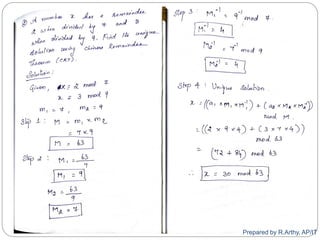 ② A number x has a remainder
2 when divided by 7 and 3
when divided by 9. Find its unique
solution using chinese Remainder
Theorem (CRT).
Solution:
Given, x = 2 mod 7
x = 3 mod 9
m₁ = 7, m₂ = 9
Step 1 : M = m₁ × m₂
= 7 × 9
M = 63
Step 2 : M₁ = 63/7
M₁ = 9
M₂ = 63/9
M₂ = 7
Step 3 : M₁⁻¹ = 9⁻¹ mod 7.
M₁⁻¹ = 4
M₂⁻¹ = 7⁻¹ mod 9
M₂⁻¹ = 4
Step 4 : Unique solution.
x = ((a₁ × M₁ × M₁⁻¹) + (a₂ × M₂ × M₂⁻¹))
mod M.
= ((2 × 9 × 4) + (3 × 7 × 4))
mod 63
= (72 + 84) mod 63
∴ x = 30 mod 63
Prepared by R.Arthy, AP/IT